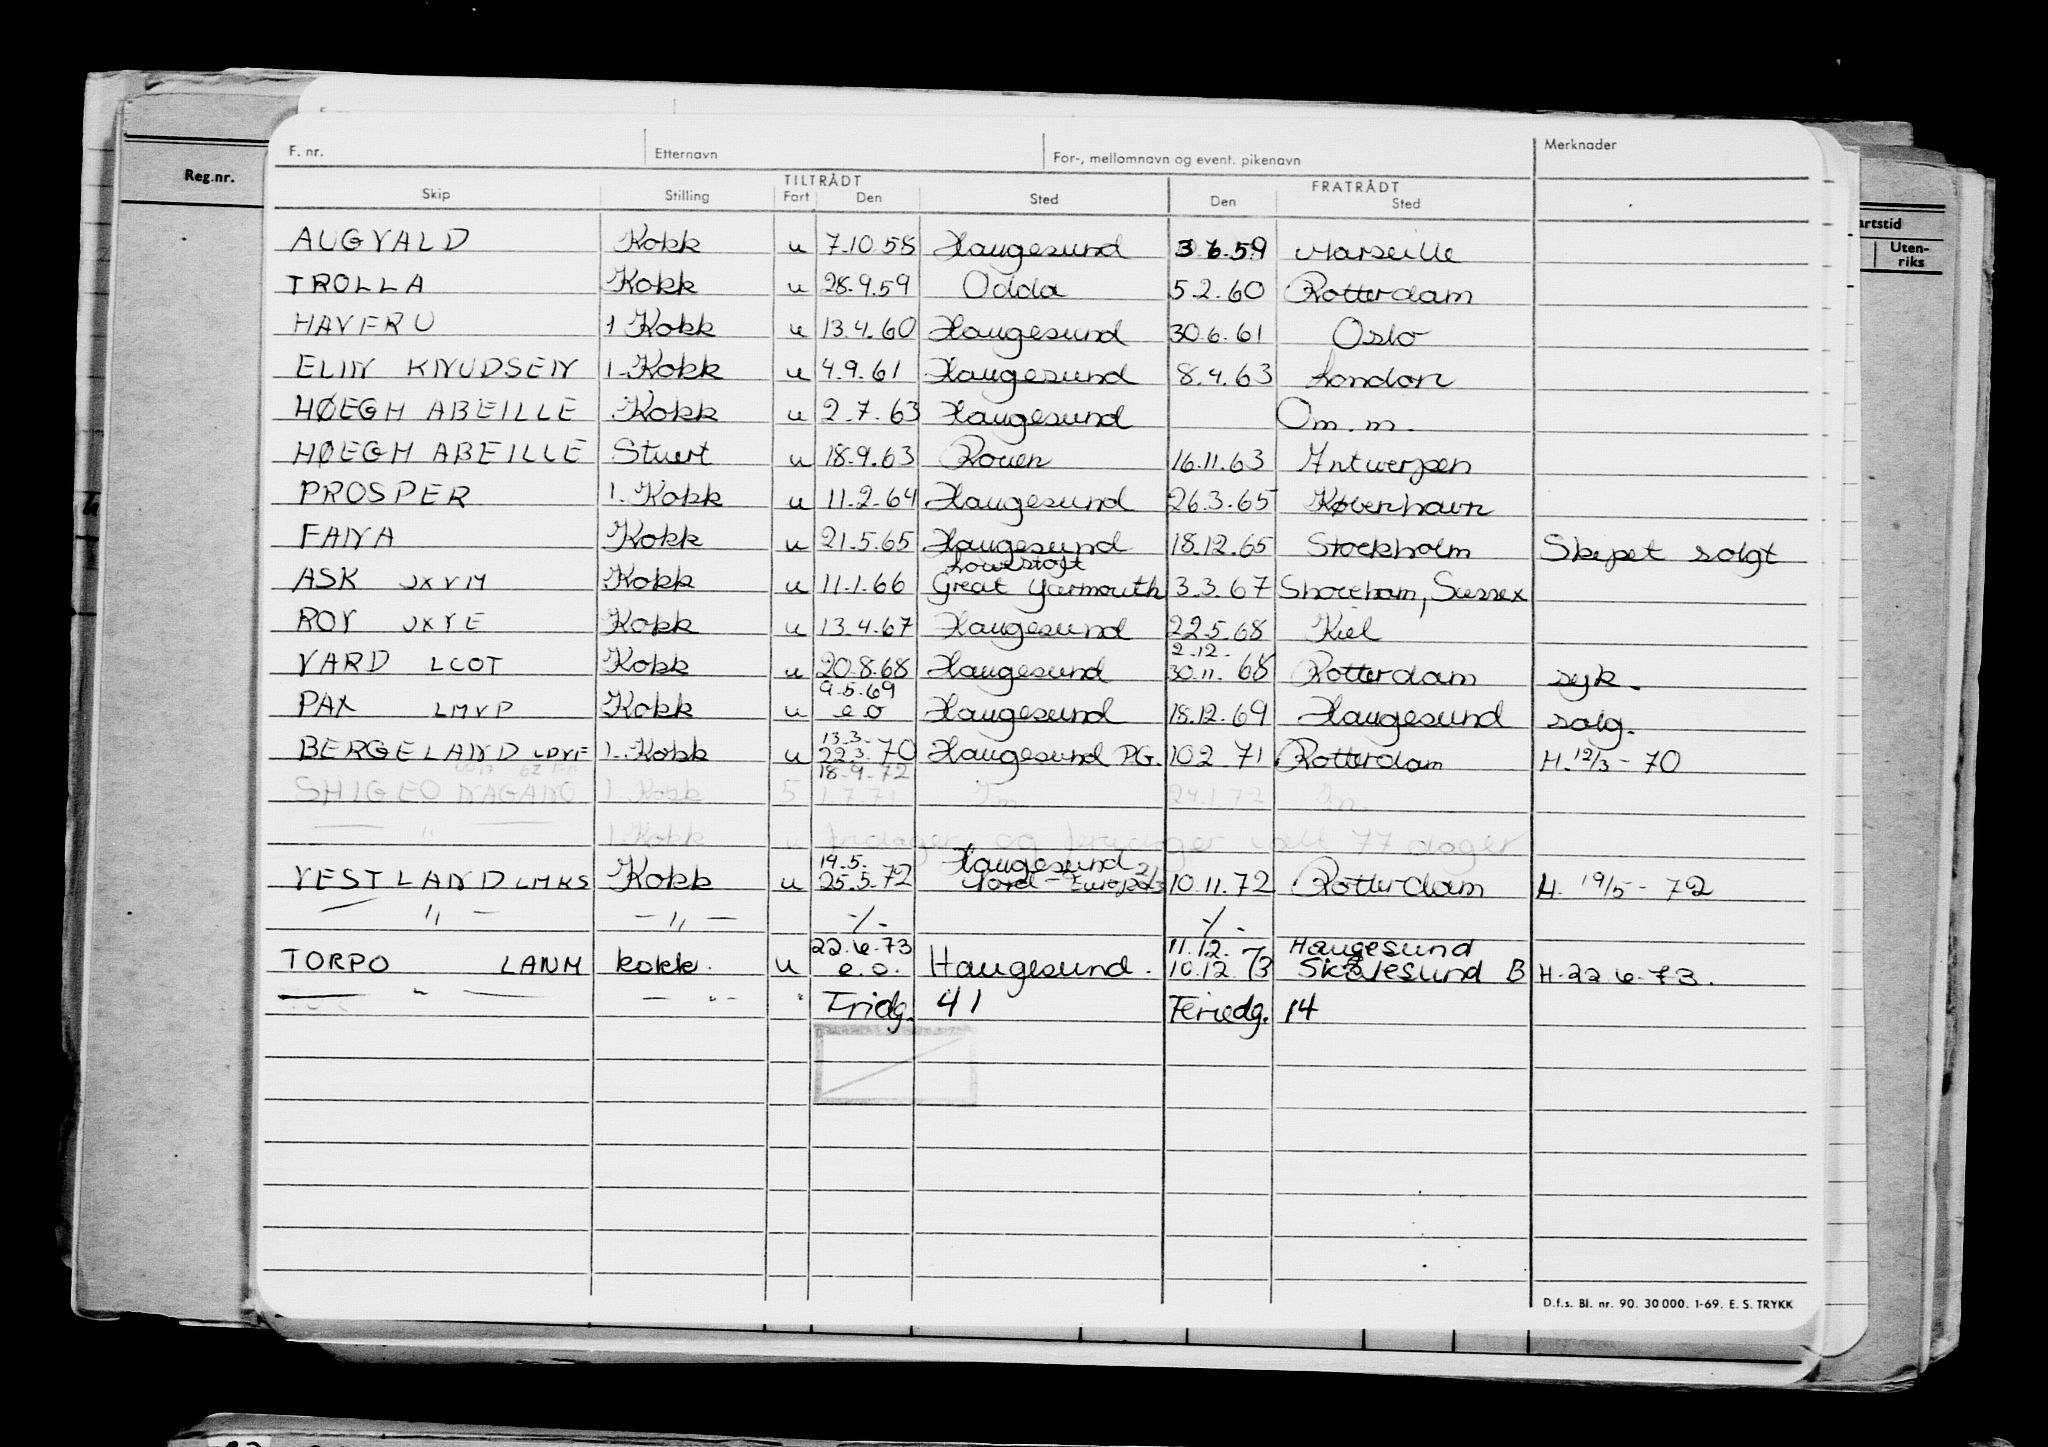 F. nr. Etternavn For-, mellomnavn og event. pikenavn Merknader
Reg.nr.
TILTRÅDT FRATRÅDT
Skip Stilling Fart Den Sted Den Sted
artstid
Uten-
riks
AUGVALD Kokk u 7.10.58 Haugesund 3.6.59 Marseille
TROLLA Kokk u 28.9.59 Odda 5.2.60 Rotterdam
HAVFRU 1 Kokk u 13.4.60 Haugesund 30.6.61 Oslo
ELIN KNUDSEN 1.Kokk u 4.9.61 Haugesund 8.4.63 London
HØEGH ABEILLE Kokk u 2.7.63 Haugesund Om.m.
HØEGH ABEILLE Stuert u 18.9.63 Rouen 16.11.63 Antwerpen
PROSPER 1. Kokk u 11.2.64 Haugesund 26.3.65 København
FANA Kokk u 21.5.65 Haugesund 18.12.65 Stockholm Skipet solgt
Lowestoft
ASK JXVM Kokk u 11.1.66 Great Yarmouth 3.3.67 Shoreham, Sussex
ROY JXYE Kokk u 13.4.67 Haugesund 22.5.68 Kiel
2.12.
VARD LCOT Kokk u 20.8.68 Haugesund 30.11.68 Rotterdam syk.
9.5.69
PAX LMVP Kokk u e o Haugesund 18.12.69 Haugesund solg.
13.3.
BERGELAND 1. Kokk u 22.3.70 Haugesund PG. 10.2 71 Rotterdam H. 12/3-70
18.9.72
SHIGEO NAGANO 1. Kokk 5 1.7.71 Im. 24.1.72 Im.
— " — 1 Kokk u fridager og feriedager i alt 77 dager
19.5. Haugesund
VESTLAND LMKS Kokk u 25.5.72 Nord-Europa 10.11.72 Rotterdam H. 19/5-72
— " — — " — -/- -/-
22.6.73 11.12. Haugesund
TORPO LANM kokk. u e.o. Haugesund. 10.12.73 Skålesund B H.22.6.73.
— " — — " — " Fridg. 41 Feriedg. 14
D.f.s. Bl. nr. 90. 30 000. 1-69. E. S. TRYKK